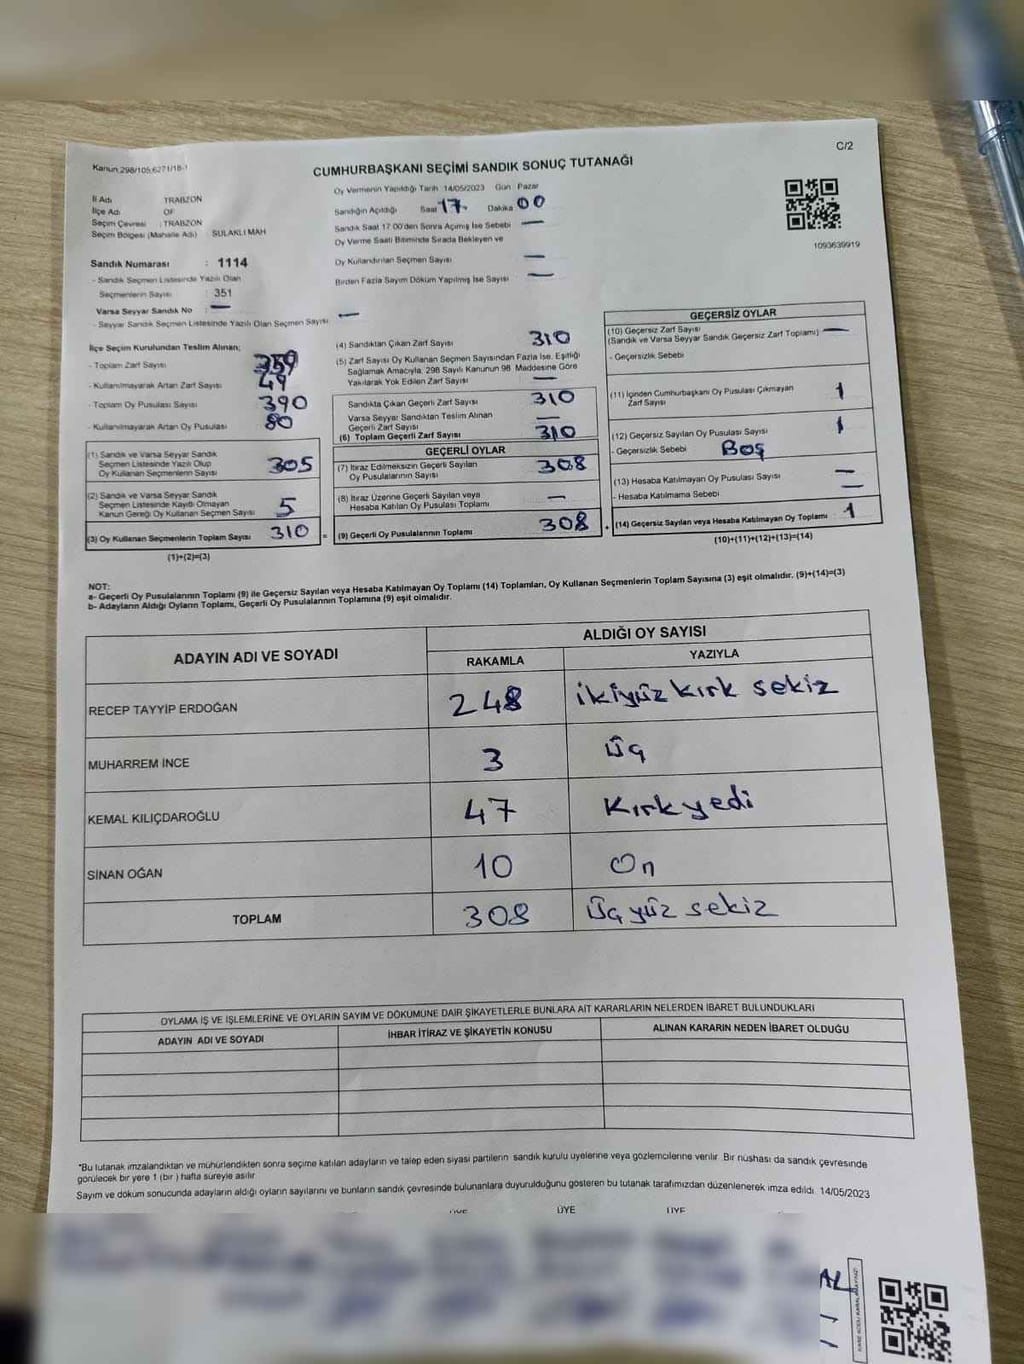 Kanun.298/105,6271/18-1
C/2
CUMHURBAŞKANI SEÇİMİ SANDIK SONUÇ TUTANAĞI
İl Adı : TRABZON
İlçe Adı : OF
Seçim Çevresi : TRABZON
Seçim Bölgesi (Mahalle Adı) : SULAKLI MAH
Sandık Numarası : 1114
- Sandık Seçmen Listesinde Yazılı Olan
Seçmenlerin Sayısı : 351
Varsa Seyyar Sandık No : —
- Seyyar Sandık Seçmen Listesinde Yazılı Olan Seçmen Sayısı : —
Oy Vermenin Yapıldığı Tarih 14/05/2023 Gün Pazar
Sandığın Açıldığı Saat 17. Dakika 00
Sandık Saat 17.00'den Sonra Açımış İse Sebebi —
Oy Verme Saati Bitiminde Sırada Bekleyen ve
Oy Kullandırılan Seçmen Sayısı —
Birden Fazla Sayım Döküm Yapılmış İse Sayısı —
1093639919
İlçe Seçim Kurulundan Teslim Alınan;
- Toplam Zarf Sayısı
- Kullanılmayarak Artan Zarf Sayısı 49
- Toplam Oy Pusulası Sayısı 390
- Kullanılmayarak Artan Oy Pusulası 80
(1) Sandık ve Varsa Seyyar Sandık
Seçmen Listesinde Yazılı Olup
Oy Kullanan Seçmenlerin Sayısı 305
(2) Sandık ve Varsa Seyyar Sandık
Seçmen Listesinde Kayıtlı Olmayan
Kanun Gereği Oy Kullanan Seçmen Sayısı 5
(3) Oy Kullanan Seçmenlerin Toplam Sayısı 310 =
(1)+(2)=(3)
(4) Sandıktan Çıkan Zarf Sayısı 310
(5) Zarf Sayısı Oy Kullanan Seçmen Sayısından Fazla İse, Eşitliği
Sağlamak Amacıyla, 298 Sayılı Kanunun 98. Maddesine Göre
Yakılarak Yok Edilen Zarf Sayısı —
Sandıkta Çıkan Geçerli Zarf Sayısı 310
Varsa Seyyar Sandıktan Teslim Alınan
Geçerli Zarf Sayısı —
(6) Toplam Geçerli Zarf Sayısı 310
GEÇERLİ OYLAR
(7) İtiraz Edilmeksizin Geçerli Sayılan
Oy Pusulalarının Sayısı 308
(8) İtiraz Üzerine Geçerli Sayılan veya
Hesaba Katılan Oy Pusulası Toplamı —
(9) Geçerli Oy Pusulalarının Toplamı 308 +
GEÇERSİZ OYLAR
(10) Geçersiz Zarf Sayısı
(Sandık ve Varsa Seyyar Sandık Geçersiz Zarf Toplamı) —
- Geçersizlik Sebebi
(11) İçinden Cumhurbaşkanı Oy Pusulası Çıkmayan
Zarf Sayısı 1
(12) Geçersiz Sayılan Oy Pusulası Sayısı 1
- Geçersizlik Sebebi Boş
(13) Hesaba Katılmayan Oy Pusulası Sayısı —
- Hesaba Katılmama Sebebi —
(14) Geçersiz Sayılan veya Hesaba Katılmayan Oy Toplamı 1
(10)+(11)+(12)+(13)=(14)
NOT:
a- Geçerli Oy Pusulalarının Toplamı (9) ile Geçersiz Sayılan veya Hesaba Katılmayan Oy Toplamı (14) Toplamları, Oy Kullanan Seçmenlerin Toplam Sayısına (3) eşit olmalıdır. (9)+(14)=(3)
b- Adayların Aldığı Oyların Toplamı, Geçerli Oy Pusulalarının Toplamına (9) eşit olmalıdır.
ADAYIN ADI VE SOYADI
ALDIĞI OY SAYISI
RAKAMLA YAZIYLA
RECEP TAYYİP ERDOĞAN 248 ikiyüz kırk sekiz
MUHARREM İNCE 3 üç
KEMAL KILIÇDAROĞLU 47 Kırk yedi
SİNAN OĞAN 10 On
TOPLAM 308 üç yüz sekiz
OYLAMA İŞ VE İŞLEMLERİNE VE OYLARIN SAYIM VE DÖKÜMÜNE DAİR ŞİKAYETLERLE BUNLARA AİT KARARLARIN NELERDEN İBARET BULUNDUKLARI
ADAYIN ADI VE SOYADI İHBAR İTİRAZ VE ŞİKAYETİN KONUSU ALINAN KARARIN NEDEN İBARET OLDUĞU
"Bu tutanak imzalandıktan ve mühürlendikten sonra seçime katılan adayların ve talep eden siyasi partilerin sandık kurulu üyelerine veya gözlemcilerine verilir. Bir nüshası da sandık çevresinde
görülecek bir yere 1 (bir ) hafta süreyle asılır
Sayım ve döküm sonucunda adayların aldığı oyların sayılarını ve bunların sandık çevresinde bulunanlara duyurulduğunu gösteren bu tutanak tarafımızdan düzenlenerek imza edildi. 14/05/2023
ÜYE ÜYE ÜYE
AL